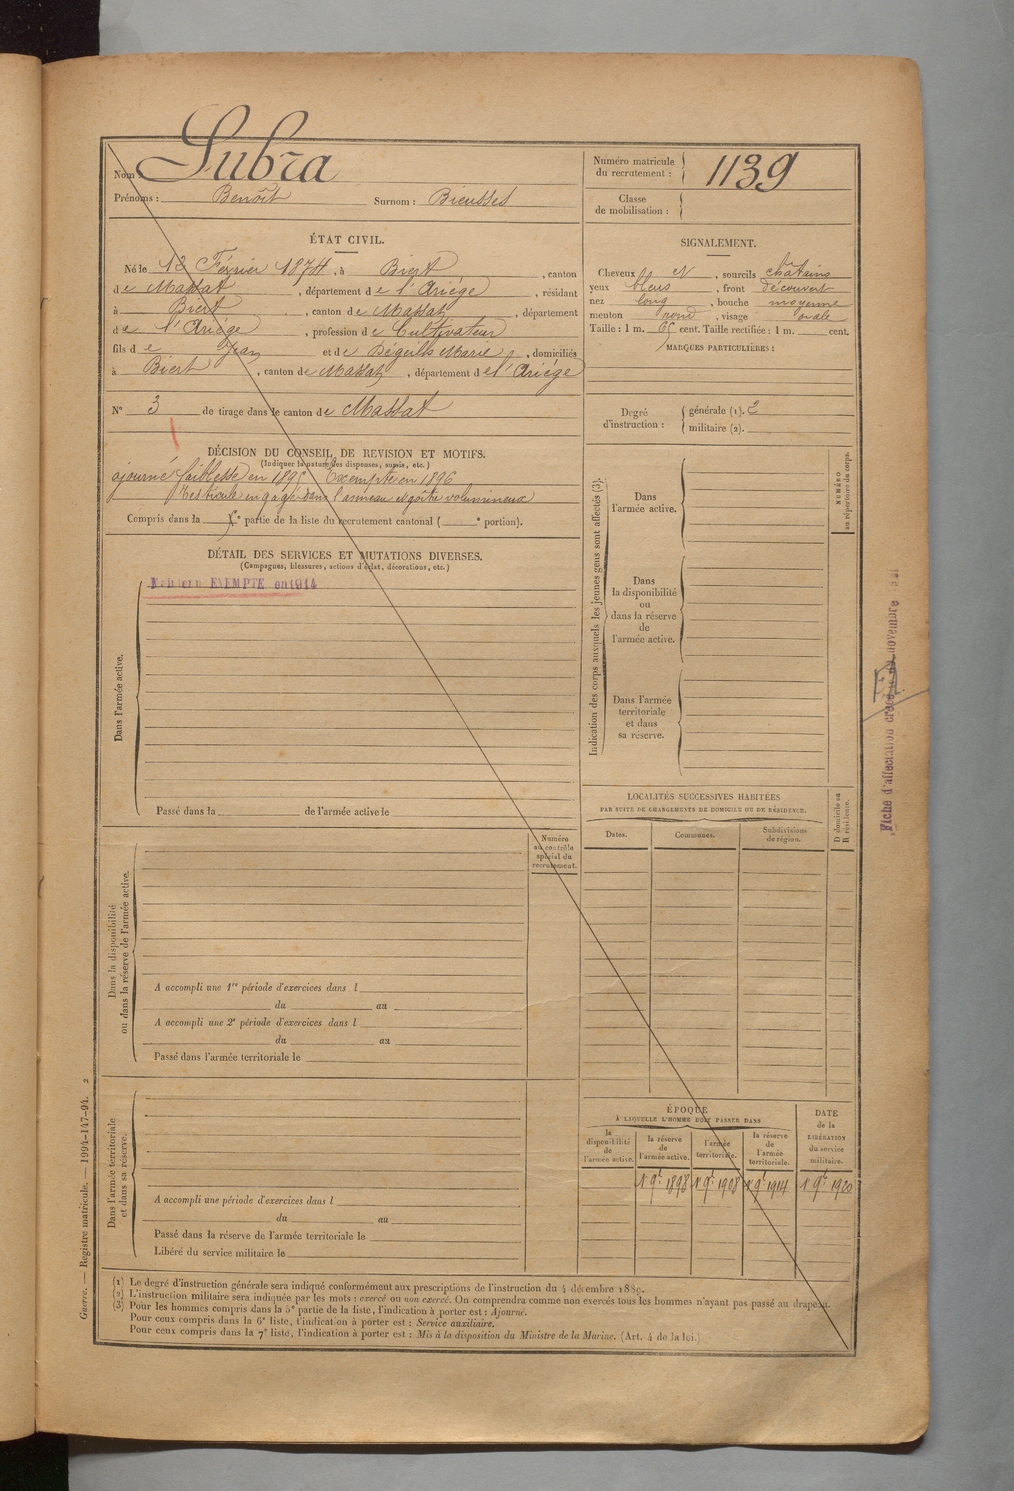 Nom : Subra
Prénoms : Benoît Surnom : Bieusses
Numéro matricule du recrutement : 1139
Classe de mobilisation :
ÉTAT CIVIL.
Né le 13 Février 1874, à Biert, canton
de Massat, département de l'Ariège, résidant
à Biert, canton de Massat, département
de l'Ariège, profession de Cultivateur
fils de Jean et de Dégeilh Marie, domiciliés
à Biert, canton de Massat, département de l'Ariège
N° 3 de tirage dans le canton de Massat
SIGNALEMENT.
Cheveux et N, sourcils châtains
yeux bleus, front découvert
nez long, bouche moyenne
menton rond, visage ovale
Taille : 1 m. 65 cent. Taille rectifiée : 1 m. cent.
MARQUES PARTICULIÈRES :
Degré d'instruction : générale (1). 2
militaire (2).
DÉCISION DU CONSEIL DE REVISION ET MOTIFS.
(Indiquer la nature des dispenses, sursis, etc.)
ajourné faiblesse en 1895 Exempté en 1896
Testicule engagé dans l'anneau et goître volumineux
Compris dans la e partie de la liste du recrutement cantonal ( e portion).
DÉTAIL DES SERVICES ET MUTATIONS DIVERSES.
(Campagnes, blessures, actions d'éclat, décorations, etc.)
Maintenu EXEMPTÉ en 1914
Dans l'armée active.
Passé dans la de l'armée active le
Indication des corps auxquels les jeunes gens sont affectés (3).
Dans l'armée active.
Dans la disponibilité ou dans la réserve de l'armée active.
Dans l'armée territoriale et dans sa réserve.
NUMÉRO au répertoire du corps.
Fiche d'affectation créée novembre
LOCALITÉS SUCCESSIVES HABITÉES
PAR SUITE DE CHANGEMENTS DE DOMICILE OU DE RÉSIDENCE.
Dates. Communes. Subdivisions de région.
D domicile ou R résidence.
Numéro au contrôle spécial du recrutement.
Dans la disponibilité ou dans la réserve de l'armée active.
A accompli une 1re période d'exercices dans l
du au
A accompli une 2e période d'exercices dans l
du au
Passé dans l'armée territoriale le
Dans l'armée territoriale et dans sa réserve.
A accompli une période d'exercices dans l
du au
Passé dans la réserve de l'armée territoriale le
Libéré du service militaire le
ÉPOQUE
À LAQUELLE L'HOMME DOIT PASSER DANS
la disponibilité de l'armée active.
la réserve de l'armée active.
l'armée territoriale.
la réserve de l'armée territoriale.
DATE de la LIBÉRATION du service militaire.
1er 9bre 1898 1er 9bre 1908 1er 9bre 1914 1er 9bre 1920
(1) Le degré d'instruction générale sera indiqué conformément aux prescriptions de l'instruction du 4 décembre 1889.
(2) L'instruction militaire sera indiquée par les mots : exercé ou non exercé. On comprendra comme non exercés tous les hommes n'ayant pas passé au drapeau.
(3) Pour les hommes compris dans la 5e partie de la liste, l'indication à porter est : Ajourné.
Pour ceux compris dans la 6e liste, l'indication à porter est : Service auxiliaire.
Pour ceux compris dans la 7e liste, l'indication à porter est : Mis à la disposition du Ministre de la Marine. (Art. 4 de la loi.)
Guerre. — Registre matricule. — 1994-147-94. 2